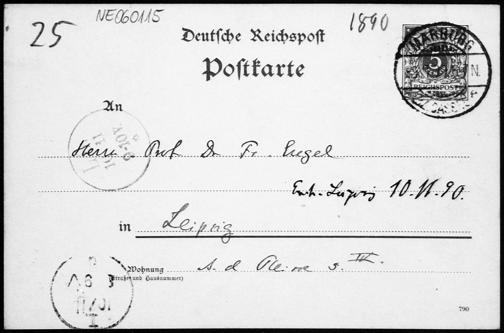 NE060115
25
1890
Deutsche Reichspost
Postkarte
MARBURG
5
REICHSPOST
An
Herrn Prof Dr Fr. Engel
Leipzig 10.11.90.
in Leipzig
Wohnung
(Straße und Hausnummer)
A. d Pleisse 3 IV.
790